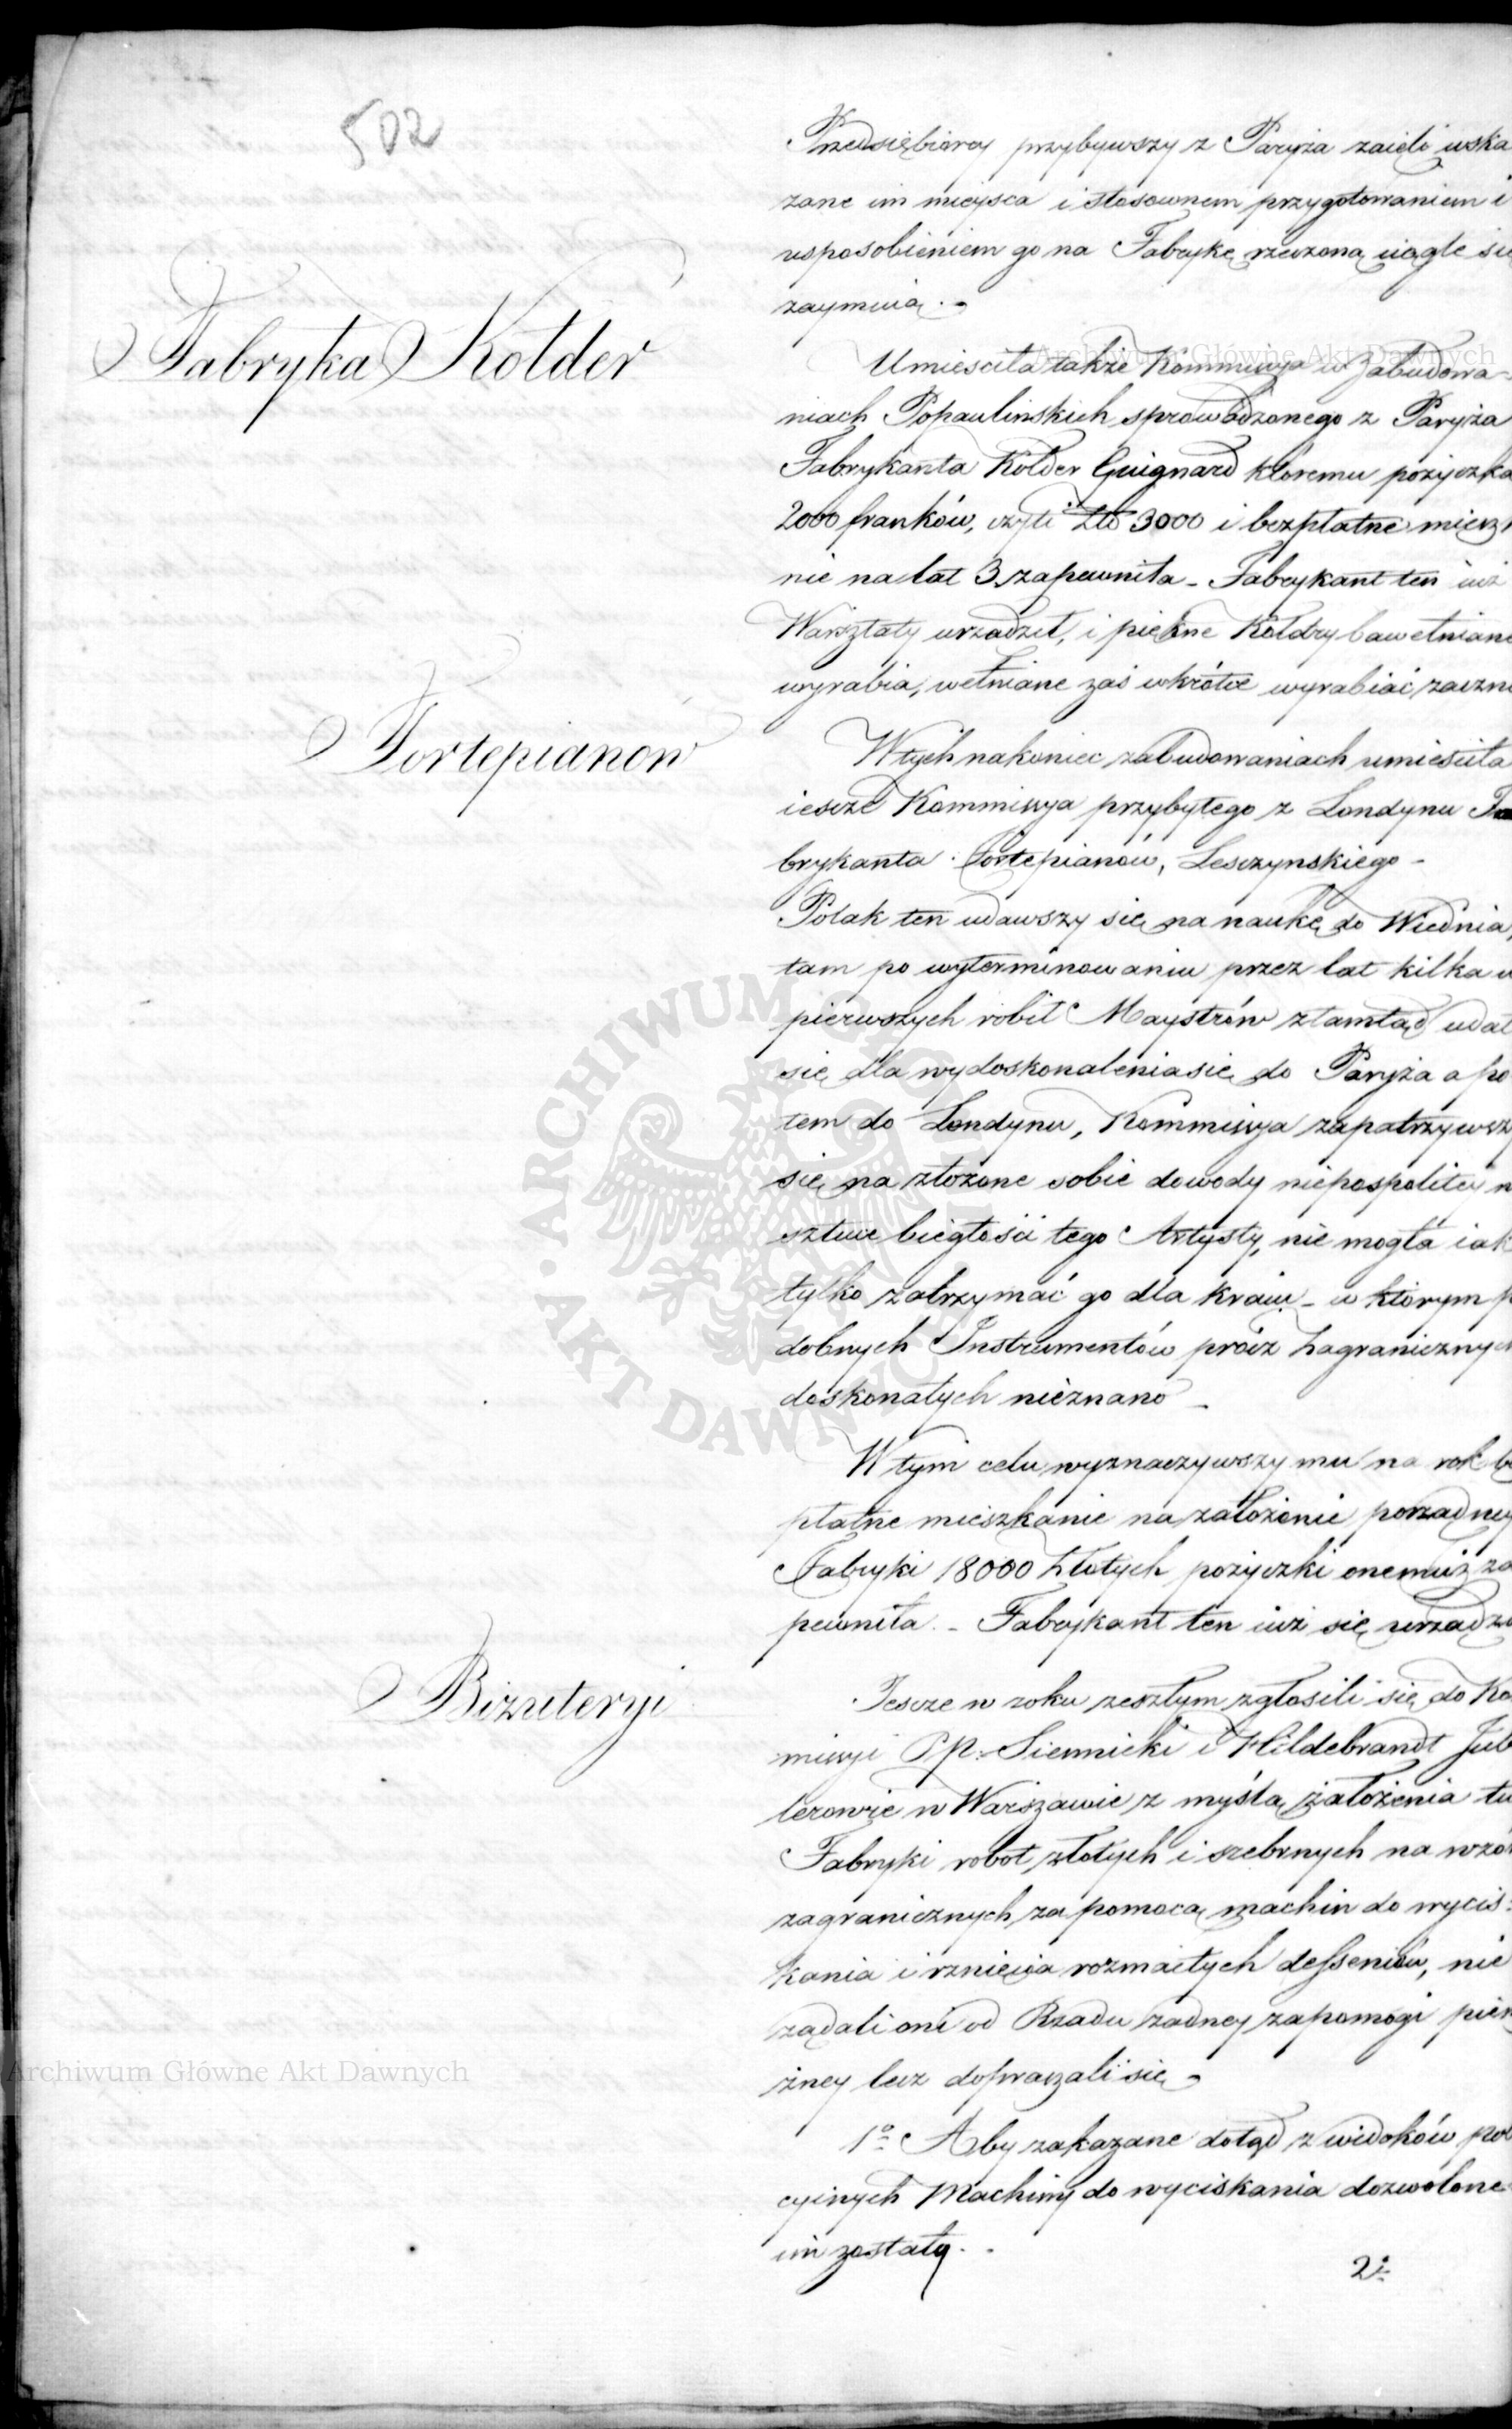 502
Przedsiębiorcy przybywszy z Paryża zaięli wska
zane im mieysca i stosownem przygotowaniem i
usposobieniem go na Fabrykę rzeczoną ciągle się
zaymuią.
Fabryka Kołder
Umieściła także Kommissya w Zabudowa-
niach Popaulińskich sprowadzonego z Paryża
Fabrykanta Kołder Guignard któremu pożyczkę
2000 franków, czyli Złt 3000 i bezpłatne mieszk
nie na lat 3 zapewniła - Fabrykant ten iuż
Warsztaty urządził, i piękne Kołdry bawełniane
wyrabia, wełniane zaś wkrótce wyrabiać zaczni
Fortepianów
W tych nakoniec zabudowaniach umieściła
iescze Kommissya przybyłego z Londynu Fa
brykanta Fortepianów, Lesczynskiego -
Polak ten udawszy się na naukę do Wiednia,
tam po wyterminowaniu przez lat kilka u
pierwszych robił Maystrów ztamtąd udał
się dla wydoskonalenia się do Paryża a po
tem do Londynu, Kommissya zapatrzywsz
się na złożone sobie dowody niepospolitey w
sztuce biegłości tego Artysty, nie mogła iak
tylko zatrzymać go dla kraiu - w którym p
dobnych Instrumentów prócz Zagranicznych
doskonałych nieznano -
W tym celu wyznaczywszy mu na rok be
płatne mieszkanie na założenie porządney
Fabryki 18000 Złotych pożyczki onemuż za
pewniła. - Fabrykant ten iuż się urządza
Biżuteryi
Jescze w roku zeszłym zgłosili się do Ko
missyi Pp. Siennicki i Hildebrandt Jub
lerowie w Warszawie z myślą założenia tu
Fabryki robot złotych i srebrnych na wzór
zagranicznych za pomocą machin do wycis:
kania i rznięcia rozmaitych desseniów, nie
żądali oni od Rządu żadney zapomogi pien
żney lecz dopraszali się
1º Aby zakazane dotąd z widoków pol
cyinych Machiny do wyciskania dozwolone
im zostały.
2º
Archiwum Główne Akt Dawnych
ARCHIWUM GŁÓWNE AKT DAWNYCH
Archiwum Główne Akt Dawnych